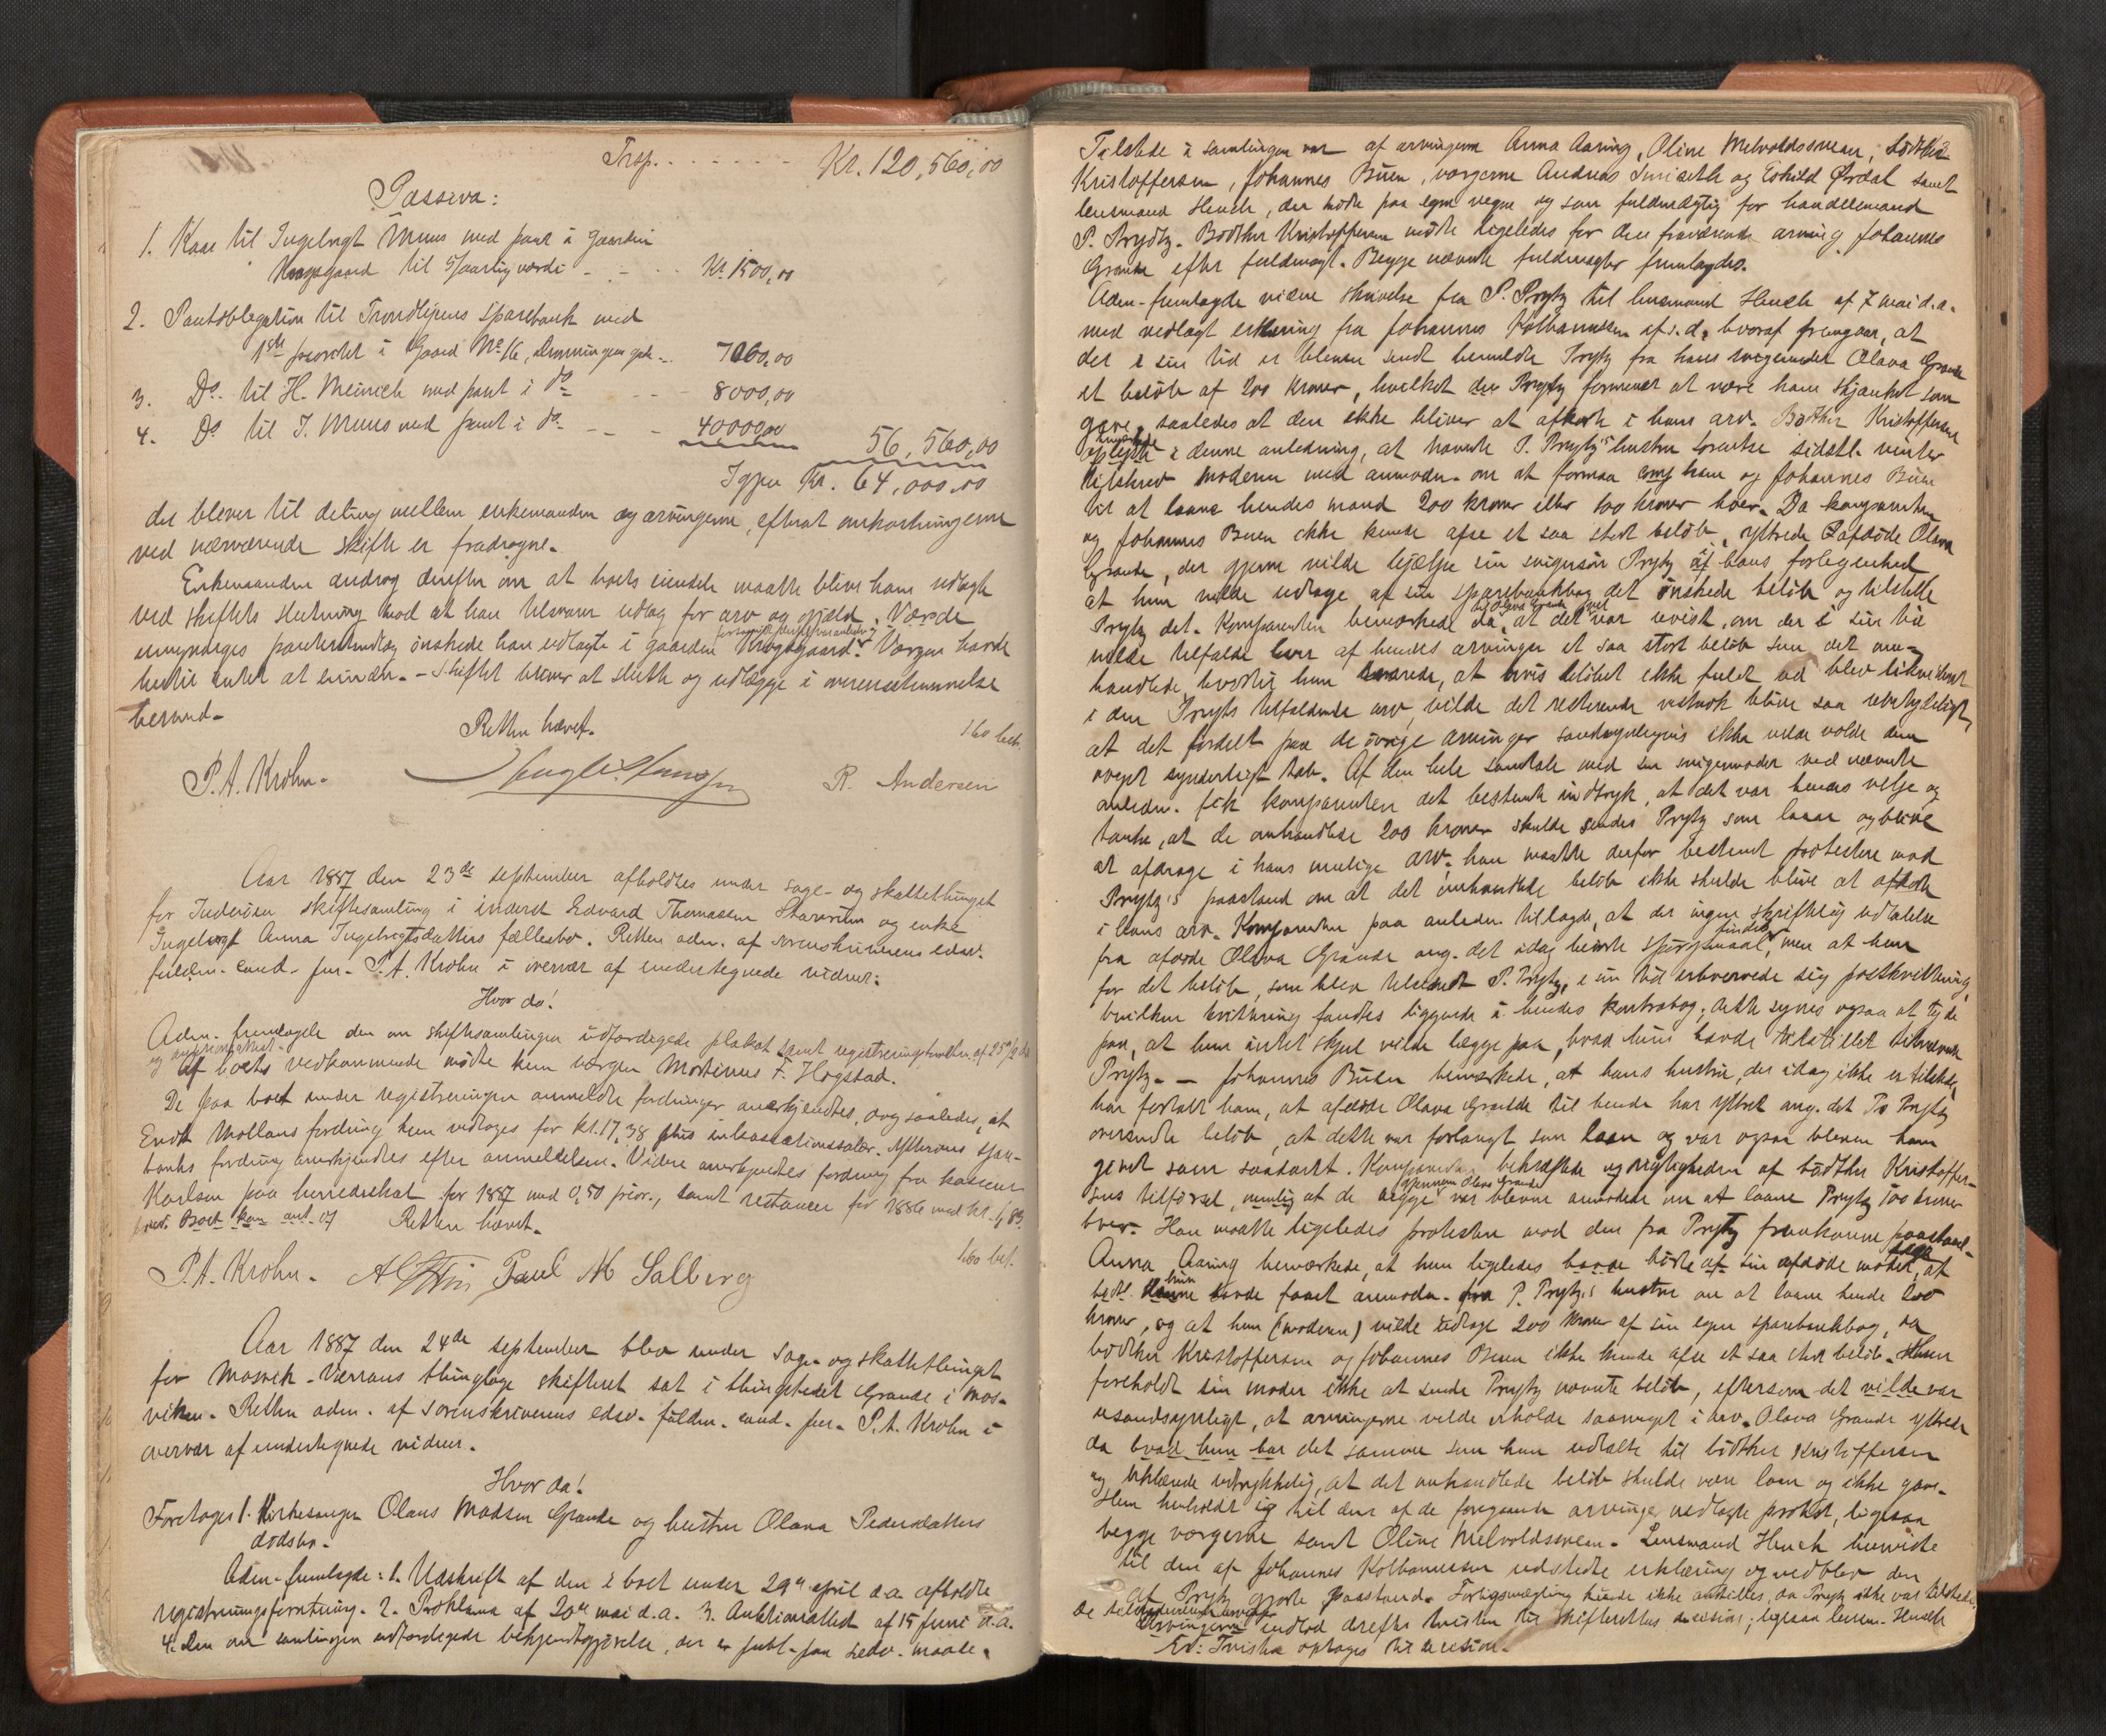 Trsp. . . . . . . . Kr. 120,560,00
Passiva:
1. Kaar til Ingebrigt Muus med pant i Gaarden
Krogsgaard til 5 aarlig værdi - - - Kr. 1500,00
2. Pantobligation til Trondhjems Sparebank med
1ste prioritet i Gaard No 16, Dronningens gade - 7060,00
3. Do til H. Meinich med pant i do - - - 8000,00
4. Do til J. Muus med pant i do - - - 40000,00 56,560,00
Igjen Kr. 64,000,00
der bliver til deling mellem enkemanden og arvingerne, efterat omkostningerne
ved nærværende skifte er fradragne.
Enkemanden androg derefter om at boets eiendele maatte blive ham udlagte
ved skiftets slutning mod at han tilsvarer udlæg for arv og gjæld. Værde
umyndiges panteudlæg ønskede han udlagte i gaarden Krogsgaard. Værgen havde
hertil intet at erindre. - Skiftet bliver at slutte og udlægge i overensstemmelse
hermed.
Retten hævet.
1 60 bet.
P.A. Krohn. R. Andersen
Aar 1887 den 23de september afholdtes under sage- og skattethinget
for Inderøen skiftesamling i inderst Edvard Thomassen Starrum og enke
Ingeborg Anna Ingebrigtsdatters fællesbo. Retten adm. af sorenskriverens edsv.
fuldm. cand. jur. P.A. Krohn i overvær af undertegnede vidner:
Hvor da!
Adm. fremlagde den om skiftesamlingen udfærdigede plakat samt registreringsforretn. af 25/2 d.a.
og auktionsattest.
Af boets vedkommende mødte kun værgen Mortinus F. Hogstad.
De paa boet under registreringen anmeldte fordringer anerkjendtes, dog saaledes, at
Endt Mollans fordring kun vedtoges for kr. 17,38 plus inkassationssalær. Ytterøens spare-
banks fordring anerkjendtes efter anmeldelsen. Videre anerkjendtes fordring fra kasserer
Karlsen paa herredsskat for 1887 med 0,50 prior., samt restancer for 1886 med kr. 1,83.
Boet kan ant. of Retten hævet.
1 60 bet.
P.A. Krohn. Paul M Salberg
Aar 1887 den 24de september blev under sage- og skattethinget
for Mosvik-Værrans thinglag skifteret sat i thingstedet Grande i Mos-
viken. Retten adm. af sorenskriverens edsv. fuldm. cand. jur. P.A. Krohn i
overvær af undertegnede vidner.
Hvor da!
Foretoges 1. Kirkesanger Olaus Madsen Grande og hustru Olava Pedersdatters
dødsbo.
Adm. fremlagde: 1. Udskrift af den i boet under 29de april d.a. afholdte
registreringsforretning. 2. Proklama af 20de mai d.a. 3. Auktionsattest af 15 juni d.a.
4. Den om samlingen udfærdigede bekjendtgjørelse, der er publ. paa sedv. maade.
Tilstede i samlingen var af arvingerne Anna Aaring, Oline Melvoldssveen, bødtker
Kristoffersen, Johannes Buen, værgerne Andreas Smiseth og Eskild Ørdal samt
lensmand Henck, der mødte paa egne vegne og som fuldmægtig for handelsmand
P. Prydtz. Bødtker Kristoffersen mødte ligeledes for den fraværende arving Johannes
Grande efter fuldmagt. Begge nævnte fuldmagter fremlagdes.
Adm. fremlagde videre skrivelse fra P. Prytz til lensmand Henck af 7 mai d.a.
med vedlagt erklæring fra Johannes Kolbannussen af s.d., hvoraf fremgaar, at
der i sin tid er bleven sendt bemeldte Prytz fra hans svigermoder Olava Grande
et beløb af 200 kroner, hvilket der Prytz formener at være ham skjænket som
gave, saaledes at den ikke bliver at afkorte i hans arv. Bødtker Kristoffersen
oplyste i denne anledning, at nævnte P. Prytz's hustru Lorentse sidstl. vinter
tilskrev moderen med anmodn. om at formaa comp. ham og Johannes Buen
til at laane hendes mand 200 kroner eller 100 kroner hver. Da komparenten
og Johannes Buen ikke kunde afse et saa stort beløb, yttrede afdøde Olava
Grande, der gjerne vilde hjælpe sin svigersøn Prytz af hans forlegenhed
at hun vilde udtage af sin sparebankbog det ønskede beløb og tilstille
Prytz det. Komparenten bemærkede da til Olava Grande, at det var uvist, om der i sin tid
vilde tilfalde hver af hendes arvinger et saa stort beløb som det om-
handlede, hvortil hun svarede, at hvis beløbet ikke fuldt ud blev likvideret
i den Prytz tilfaldende arv, vilde det resterende vistnok blive saa ubetydeligt,
at det fordelt paa de øvrige arvinger sandsynligvis ikke vilde volde dem
noget synderligt tab. Af den hele samtale med sin svigermoder ved nævnte
anledn. fik komparenten det bestemte indtryk, at det var hendes vilje og
tanke, at de omhandlede 200 kroner skulde sendes Prytz som laan og blive
at afdrage i hans mulige arv; han maatte derfor bestemt protestere mod
Prytz's paastand om at det omhandlede beløb ikke skulde blive at afkorte
i hans arv. Komparenten paa anledn. tillagde, at der ingen skriftlig udtalelse
fra afdøde Olava Grande ang. det idag berørte spørgsmaal findes, men at hun
for det beløb, som blev tilsendt P. Prytz, i sin tid erhvervede sig postkvittering,
hvilken kvittering fandtes liggende i hendes kontrabog; dette synes ogsaa at tyde
paa, at hun intet skjul vilde lægge paa, hvad hun havde tilstillet nævnte
Prytz. - Johannes Buen bemærkede, at hans hustru, der idag ikke er tilstede,
har fortalt ham, at afdøde Olava Grande til hende har yttret ang. det P. Prytz
oversendte beløb, at dette var forlangt som laan og var ogsaa bleven ham
givet som saadant. Komparenten bekræftede og rigtigheden af bødtker Kristoffer-
sens tilførsel, nemlig at de begge gjennem Olava Grande var blevne anmodede om at laane Prytz 100 kroner
hver. Han maatte ligeledes protestere mod den fra Prytz fremkomne paastand.
Anna Aaring bemærkede, at hun ligeledes havde hørt af sin afdøde moder, at
hun havde faaet anmodn. fra P. Prytz's hustru om at laane hende 200
kroner, og at hun (moderen) vilde udtage 200 kroner af sin egen sparebankbog, da
bødtker Kristoffersen og Johannes Buen ikke kunde afse et saa stort beløb. Hun
foreholdt sin moder ikke at sende Prytz nævnte beløb, eftersom det vilde var
usandsynligt, at arvingerne vilde erholde saameget i arv. Olava Grande yttrede
da hvad hun har det samme som hun udtalte til bødtker Kristoffersen
og erklærede udtrykkelig, at det omhandlede beløb skulde være laan og ikke gave.
Hun henholdt sig til den af de foregaaende arvinger nedlagte protest, ligesaa
begge værgerne samt Oline Melvoldssveen. Lensmand Henck henviste
til den af Johannes Kolbannussen udstedte erklæring og vedblev den
af Prytz gjorte paastand. Forligsmægling kunde ikke anstilles, da Prytz ikke var tilstede.
De tilstedeværende arvinger indlod derefter tvisten til skifterettens decision; ligesaa lensm. Henck
Ed: Tvisten optages til decision.